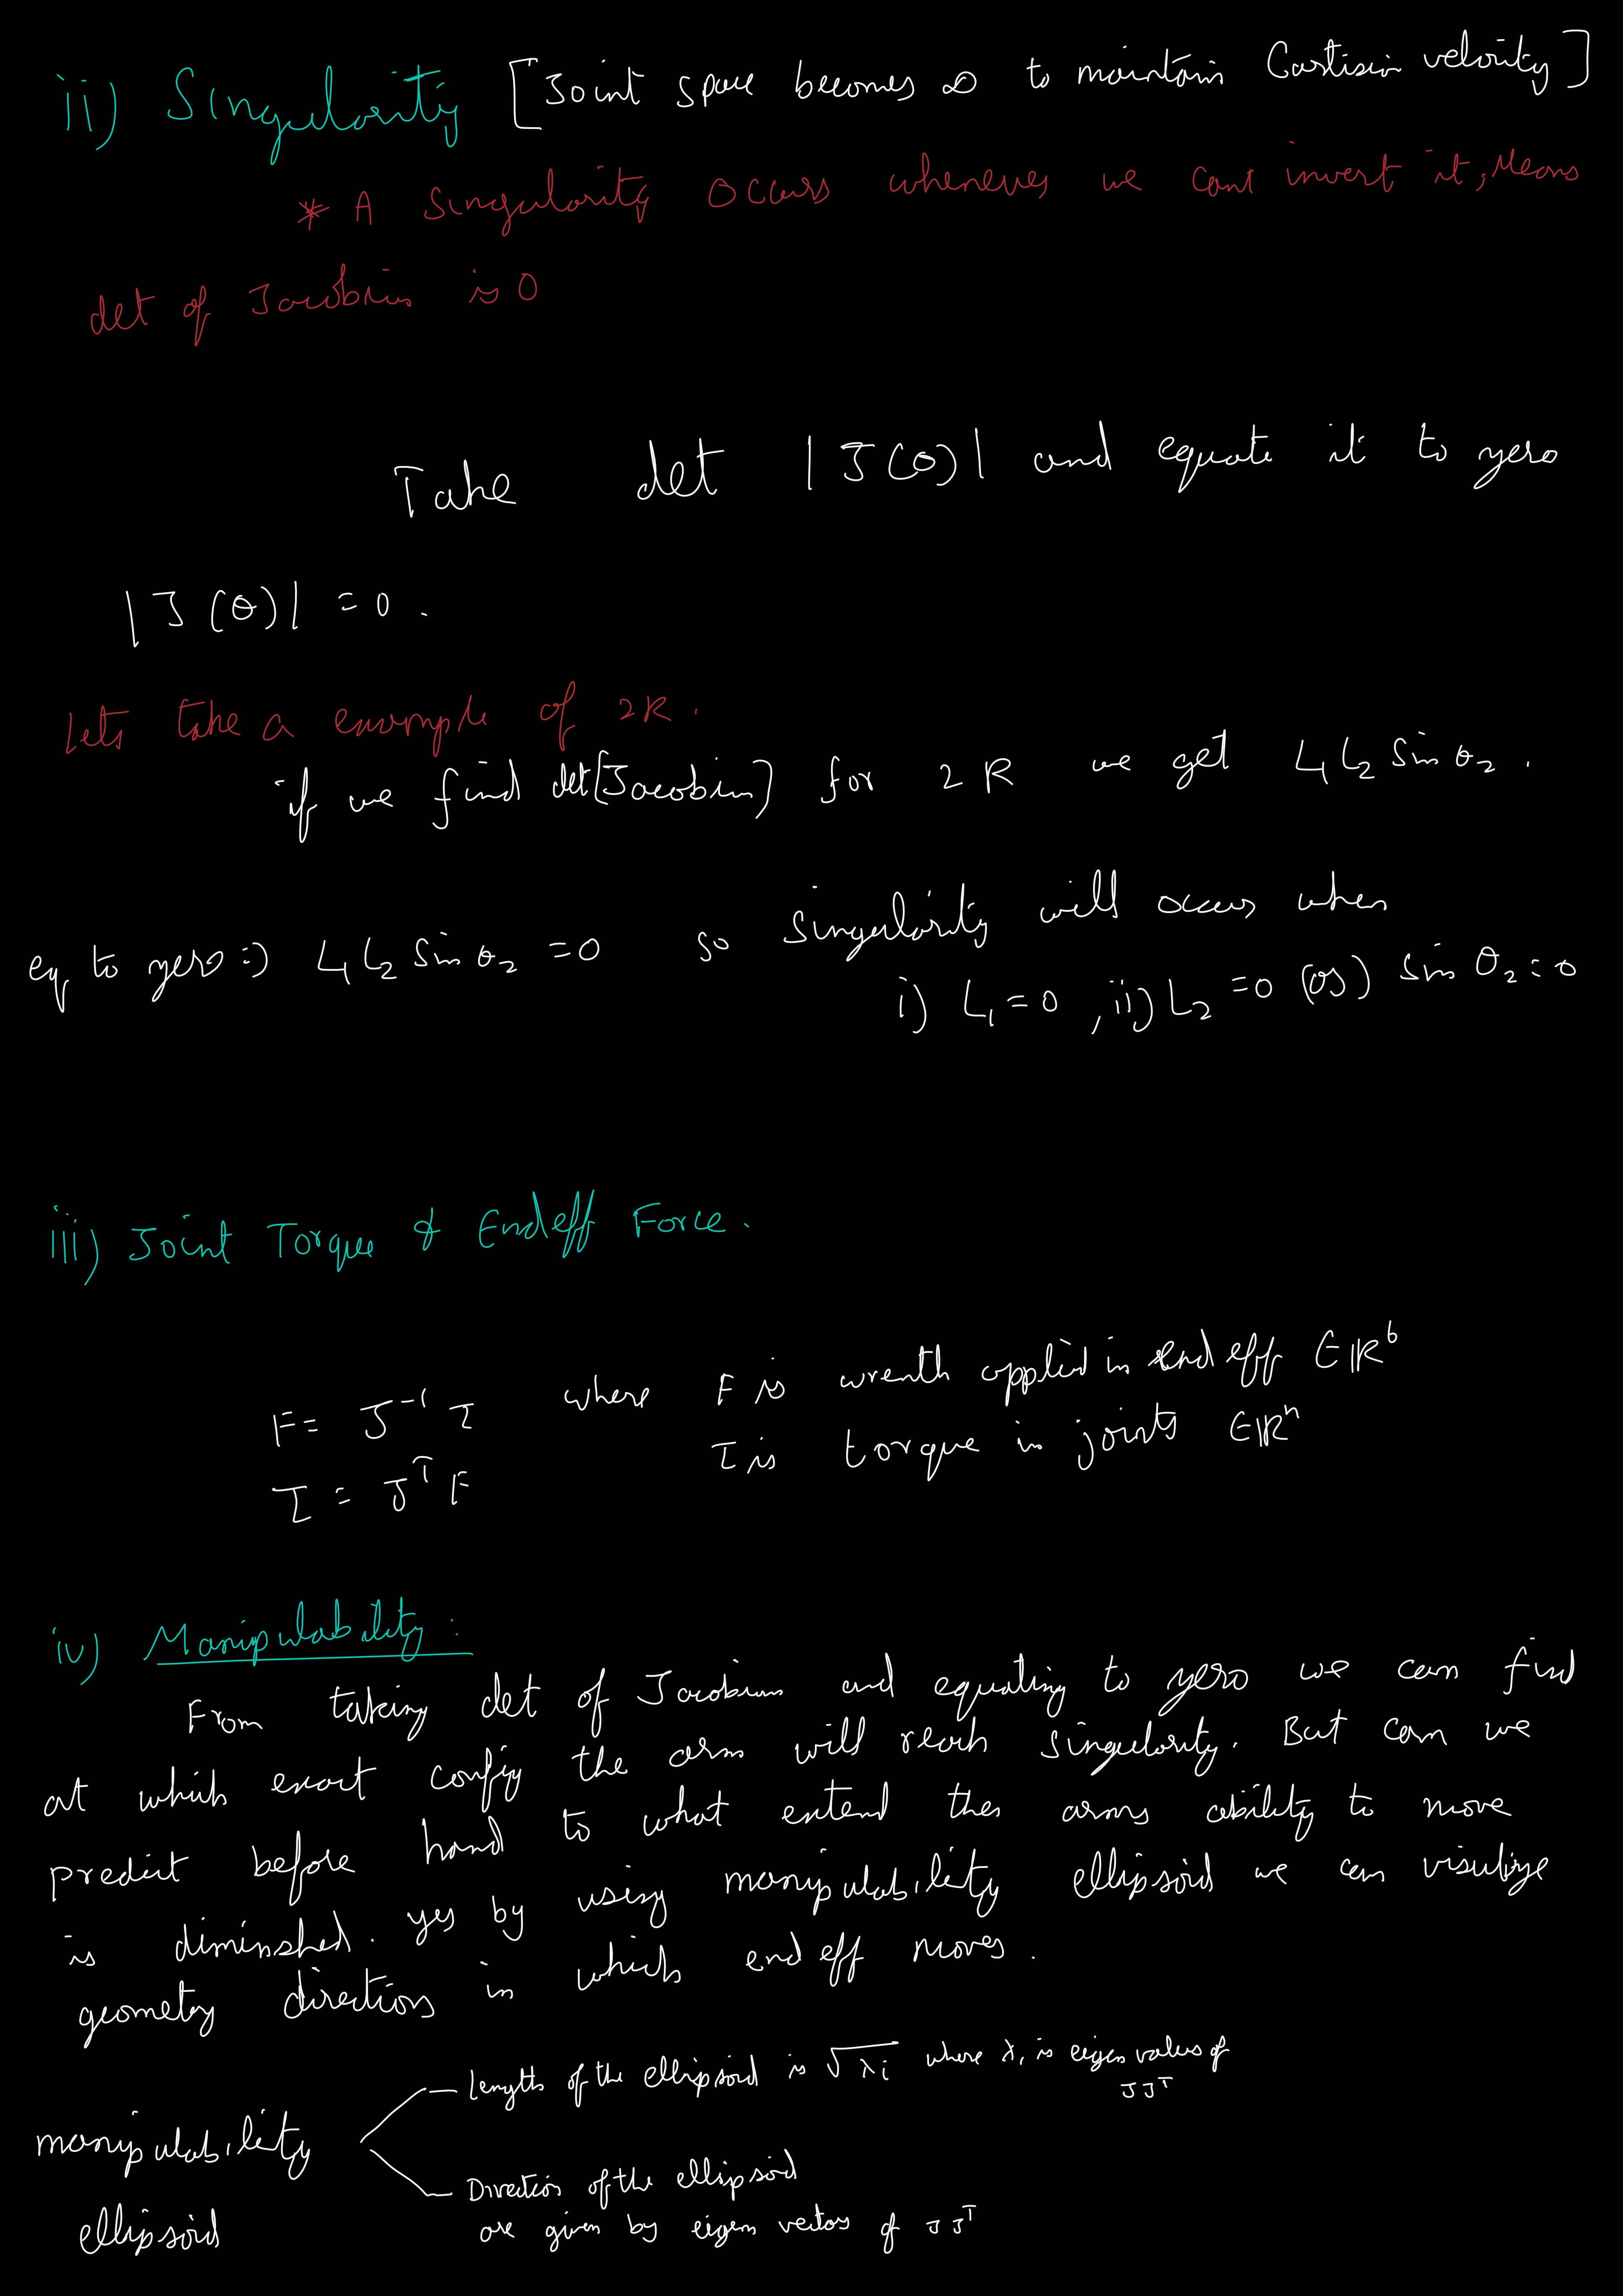 ii) Singularity [Joint space becomes ∞ to maintain Cartisian velocity]
* A Singularity occurs whenever we cant invert it, Means
det of Jacobian is 0
Take det |J(θ)| and equate it to zero
|J(θ)| = 0.
Lets take a example of 2R.
if we find det[Jacobian] for 2R we get L₁L₂ Sin θ₂.
eq to zero ⇒ L₁L₂ Sin θ₂ = 0 so singularity will occur when
i) L₁ = 0, ii) L₂ = 0 (or) sin θ₂ = 0
iii) Joint Torque & Endeff Force.
F = J⁻¹ τ where F is wrenth applied in end eff ∈ ℝ⁶
τ = Jᵀ F τ is torque in joints ∈ ℝⁿ
iv) Manipulability:
From taking det of Jacobian and equating to zero we can find
at which exact config the arm will reach singularity. But can we
predict before hand to what extend the arms ability to move
is diminshed. yes by using manipulability ellipsoid we can visulize
geometry direction in which end eff moves.
Length of the ellipsoid is √λᵢ where λᵢ is eigen values of
JJᵀ
manipulability
ellipsoid
Direction of the ellipsoid
are given by eigen vectors of JJᵀ